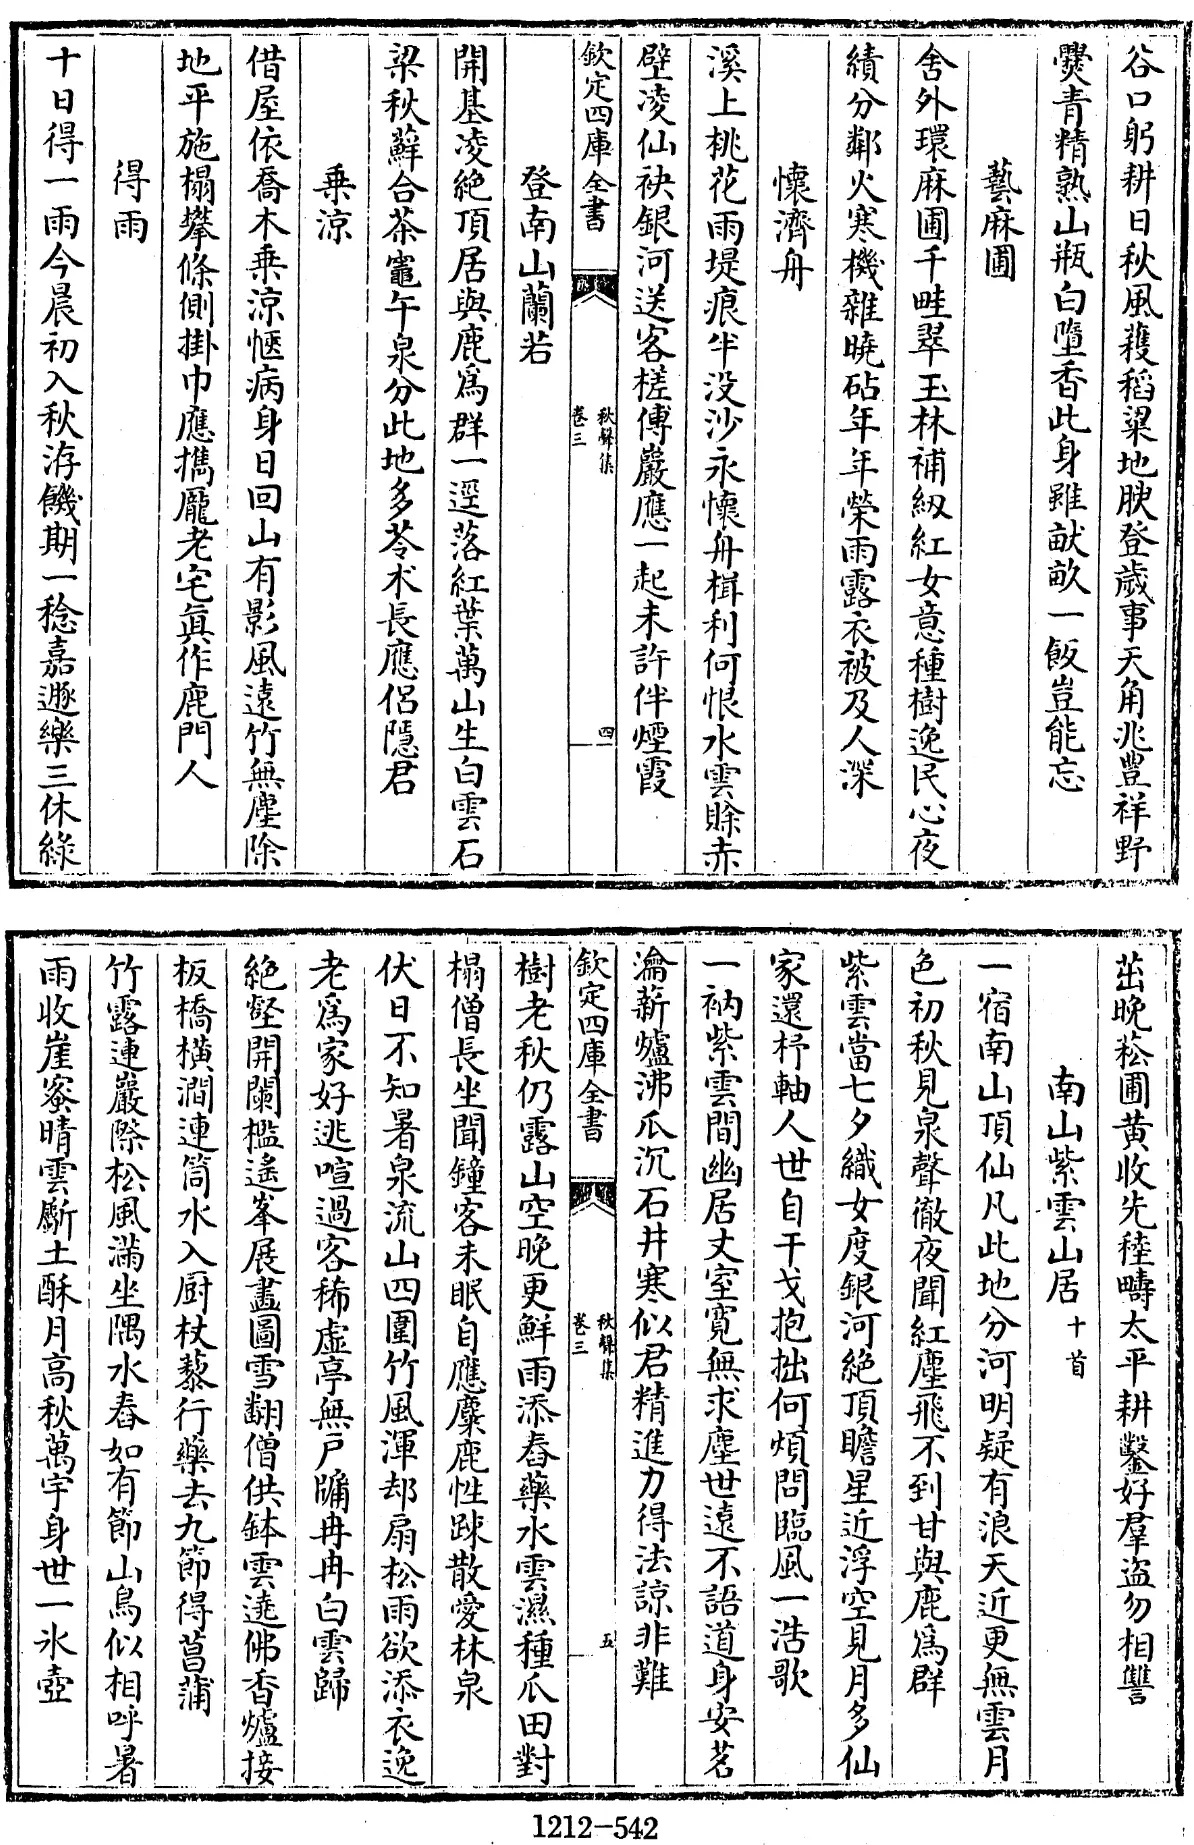 谷口躬耕日秋風穫稻粱地腴登歲事天角兆豐祥野
爨青精熟山瓶白墮香此身雖畎畝一飯豈能忘
藝麻圃
舍外環麻圃千畦翠玉林補紉紅女意種樹逸民心夜
績分鄰火寒機雜曉砧年年榮雨露衣被及人深
懷濟舟
溪上桃花雨堤痕半没沙永懷舟楫利何恨水雲賖赤
壁凌仙袂銀河送客槎傅巖應一起未許伴煙霞
欽定四庫全書
秋聲集
卷三
四
登南山蘭若
開基凌絶頂居與鹿爲群一逕落紅葉萬山生白雲石
梁秋蘚合茶竈午泉分此地多苓术長應侶隱君
乗涼
借屋依喬木乗涼愜病身日回山有影風逺竹無塵除
地平施榻攀條側掛巾應携龎老宅眞作鹿門人
得雨
十日得一雨今晨初入秋洊饑期一稔嘉遯樂三休綠
茁晚菘圃黄收先稑疇太平耕鑿好羣盗勿相讐
南山紫雲山居十首
一宿南山頂仙凡此地分河明疑有浪天近更無雲月
色初秋見泉聲徹夜聞紅塵飛不到甘與鹿爲群
紫雲當七夕織女度銀河絶頂瞻星近浮空見月多仙
家還杼軸人世自干戈抱拙何煩問臨風一浩歌
一衲紫雲間幽居丈室寛無求塵世逺不語道身安茗
瀹薪爐沸瓜沉石井寒似君精進力得法諒非難
欽定四庫全書
秋聲集
卷三
五
樹老秋仍露山空晚更鮮雨添舂藥水雲濕種瓜田對
榻僧長坐聞鐘客未眠自應麋鹿性踈散愛林泉
伏日不知暑泉流山四圍竹風渾却扇松雨欲添衣逸
老爲家好逃喧過客稀虚亭無戸牖冉冉白雲歸
絶壑開闌檻遥峯展畫圖雪翻僧供鉢雲遶佛香爐接
板橋横澗連筒水入厨杖藜行藥去九節得菖蒲
竹露連巖際松風滿坐隅水舂如有節山鳥似相呼暑
雨收崖蜜晴雲斸土酥月高秋萬宇身世一氷壺
1212-542